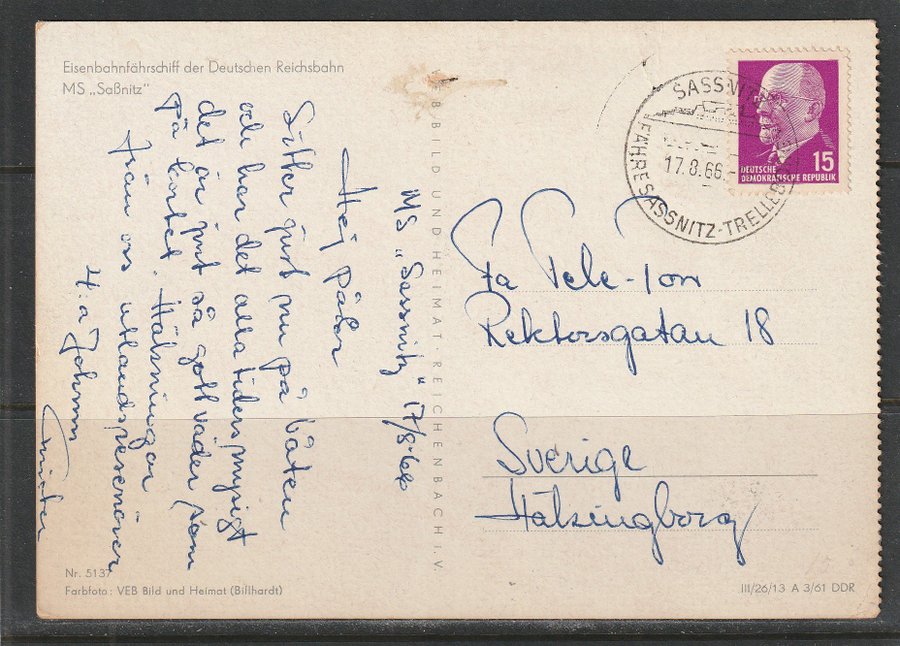 Eisenbahnfährschiff der Deutschen Reichsbahn
MS „Saßnitz"
MS „Sassnitz" 17/8·66
Hej päder
Sitter just nu på båten
och har det alla tiders mysigt
det är just så gott väder som
på kortet. Hälsningar
från oss utlandsresenärer
H:a Johnny
BILD UND HEIMAT REICHENBACH I. V.
SASSNITZ
17.8.66.
FÄHRE SASSNITZ-TRELLEBORG
15
DEUTSCHE
DEMOKRATISCHE REPUBLIK
Fa Tele-Ton
Rektorsgatan 18
Sverige
Hälsingborg
Nr. 5137
Farbfoto: VEB Bild und Heimat (Billhardt)
III/26/13 A 3/61 DDR